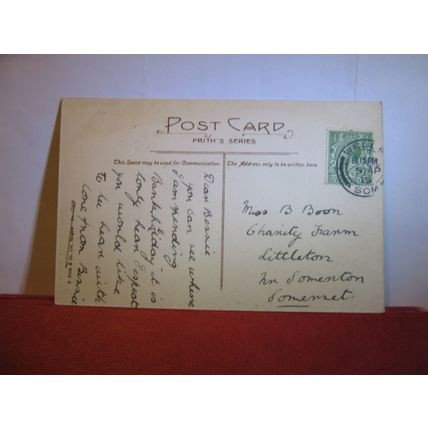 POST CARD
FRITH'S SERIES
This Space may be used for Communication.
The Address only to be written here
WELLS
8.15 PM
15
SOM
Dear Bennie
you can see where
I am spending
Bank holiday it is
lovely hear I expect
you would like
to be hear with
love from Bennie
Miss B Boon
Charity Farm
Littleton
Nr Somerton
Somerset.